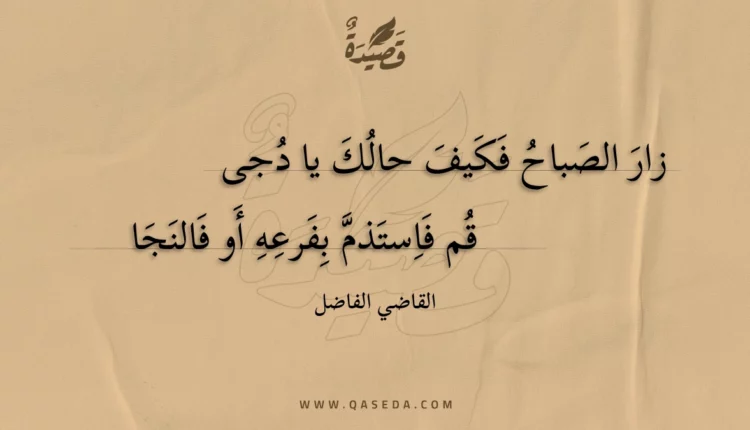 قَصِيْدَةٌ
زارَ الصَباحُ فَكَيفَ حالُكَ يا دُجى
قُم فَاِستَذمَّ بِفَرعِهِ أَو فَالنَجَا
القاضي الفاضل
WWW.QASEDA.COM